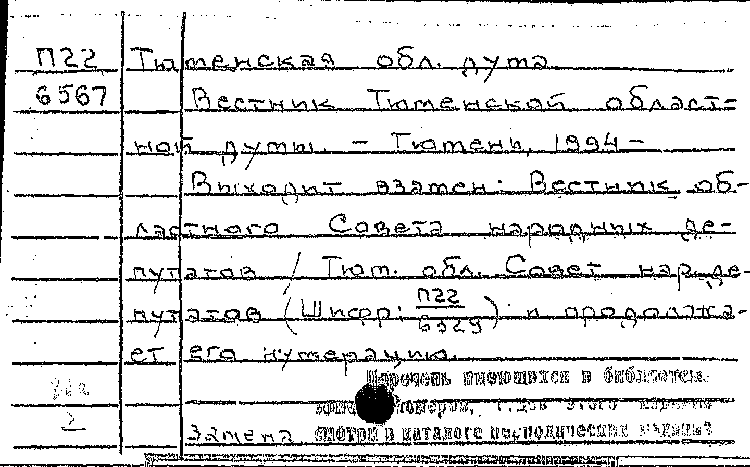 П22 Тюменская обл. дума
6567 Вестник Тюменской област-
ной думы. – Тюмень, 1994 –
Выходит взамен: Вестник об-
ластного Совета народных де-
путатов / Тюм. обл. Совет нар. де-
путатов (Шифр: П22/6329) и продолжа-
ет его нумерацию.
Перечень имеющихся в библиотеке
номеров, этого издания
смотри в каталоге периодических изданий
Замена